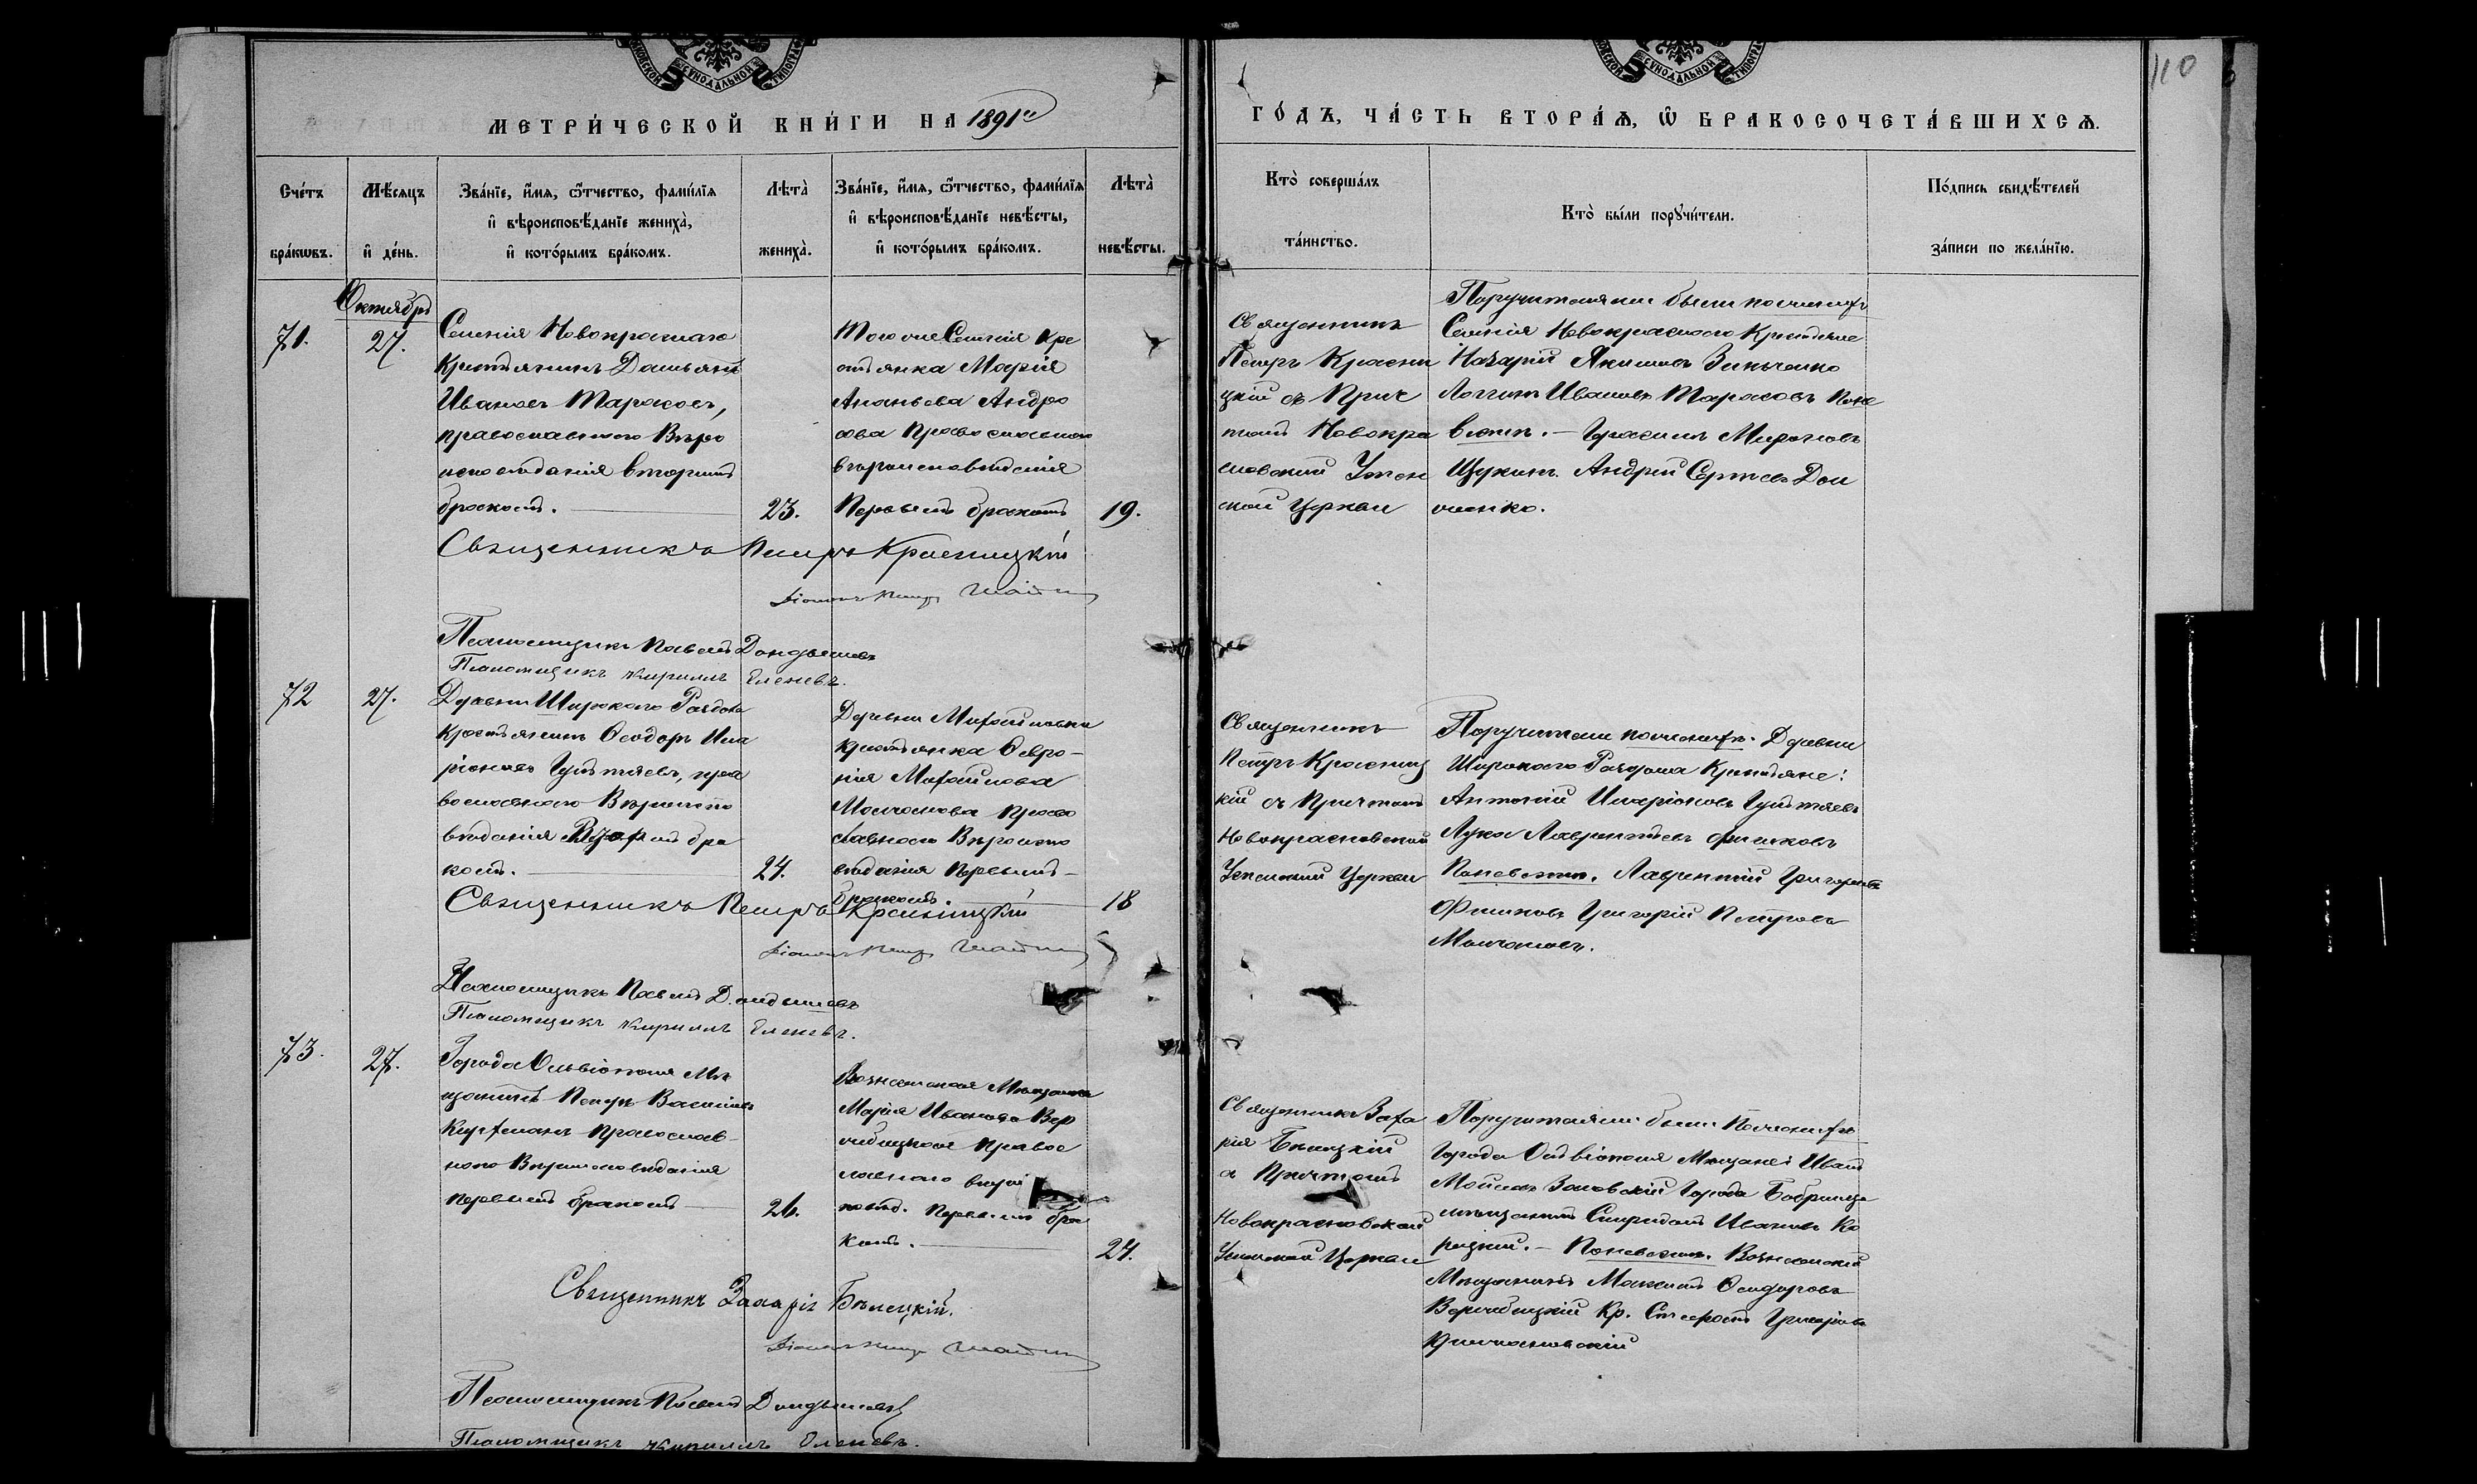 МЕТРИ́ЧЕСКОЙ КНИ́ГИ НА 1891й
ГО́ДЪ, ЧА́СТЬ ВТОРА́Ѧ, Ѽ БРАКОСОЧЕТА́ВШИХСѦ.
110
Сче́тъ бра́кѡвъ.
Мѣ́сяцъ и҆ де́нь.
Зва́нїе, и҆́мя, ѻ҆́тчество, фами́лїя
и҆ вѣроисповѣ́данїе жениха̀,
и҆ кото́рымъ бра́комъ.
Лѣта̀ жениха̀.
Зва́нїе, и҆́мя, ѻ҆́тчество, фами́лїя
и҆ вѣроисповѣ́данїе невѣ́сты,
и҆ кото́рымъ бра́комъ.
Лѣта̀ невѣ́сты.
Кто̀ соверша́лъ та́инство.
Кто̀ бы́ли порꙋчи́тели.
По́дпись свидѣ́телей
за́писи по жела́нїю.
Октябрь
71.
27.
Селенія Новокраснаго
Крестьянинъ Дамьянъ
Ивановъ Тарасовъ,
православнаго Вѣро
исповѣданія вторымъ
бракомъ.
23.
Того же Селенія Кре
стьянка Марія
Ананьева Андро
сова Православнаго
вѣроисповѣданія
Первымъ бракомъ
19.
Священникъ
Петръ Красни
цкій съ Прич
томъ Новокра
сновской Успен
ской Церкви
Поручителями были по женихѣ
Селенія Новокраснаго Крестьяне
Назарій Якимовъ Зинченко
Логгинъ Ивановъ Тарасовъ По не
вѣстѣ. - Герасимъ Мироновъ
Щукинъ. Андрей Сергѣевъ Дом
ченко.
Священникъ Петръ Красницкій
Діаконъ Петръ
Псаломщикъ Павелъ
Псаломщикъ Кириллъ Еленевъ.
72
27.
Деревни Широкаго Раздола
Крестьянинъ Ѳеодоръ Ила
ріоновъ, пра
вославнаго Вѣроиспо
вѣданія бра
комъ.
24.
Деревни Михайловки
крестьянка Февро-
нія Михайлова
Молчанова Право
славнаго Вѣроиспо
вѣданія Первымъ
бракомъ
18
Священникъ
Петръ Красниц
кій съ Причтомъ
Новокрасновской
Успенской Церкви
Поручители по женихѣ. Деревни
Широкаго Раздола Крестьяне:
Антоній Иларіоновъ
Лука Лаврентьевъ Фишковъ
По невѣстѣ. Лаврентій Григорьевъ
Фишковъ Григорій Петровъ
Молчановъ.
Священникъ Петръ Красницкій
Діаконъ Петръ
Псаломщикъ Павелъ
Псаломщикъ Кириллъ Еленевъ.
73.
27.
Города Ольвіополя Мѣ
щанинъ Петръ Васильевъ
Православ-
наго Вѣроисповѣданія
первымъ бракомъ
26.
Вознесенская Мѣщанка
Марія Иванова Вер
жбицкая Правос
лавнаго вѣрои
повѣд. Первымъ бра
комъ.
24.
Священникъ Заха
рія Бѣлецкій
съ Причтомъ
Новокрасновской
Успенской Церкви
Поручителями были По женихѣ
Города Ольвіополя Мѣщане: Иванъ
Города Бобринца
мѣщанинъ Спиридонъ Ивановъ Ко
рецкій. - По невѣстѣ. Вознесенскій
Мѣщанинъ Максимъ Ѳеодоровъ
Вержбицкій Кр. Стефанъ Григорьевъ
Священникъ Захарія Бѣлецкій.
Діаконъ Петръ
Псаломщикъ Павелъ
Псаломщикъ Кириллъ Еленевъ.